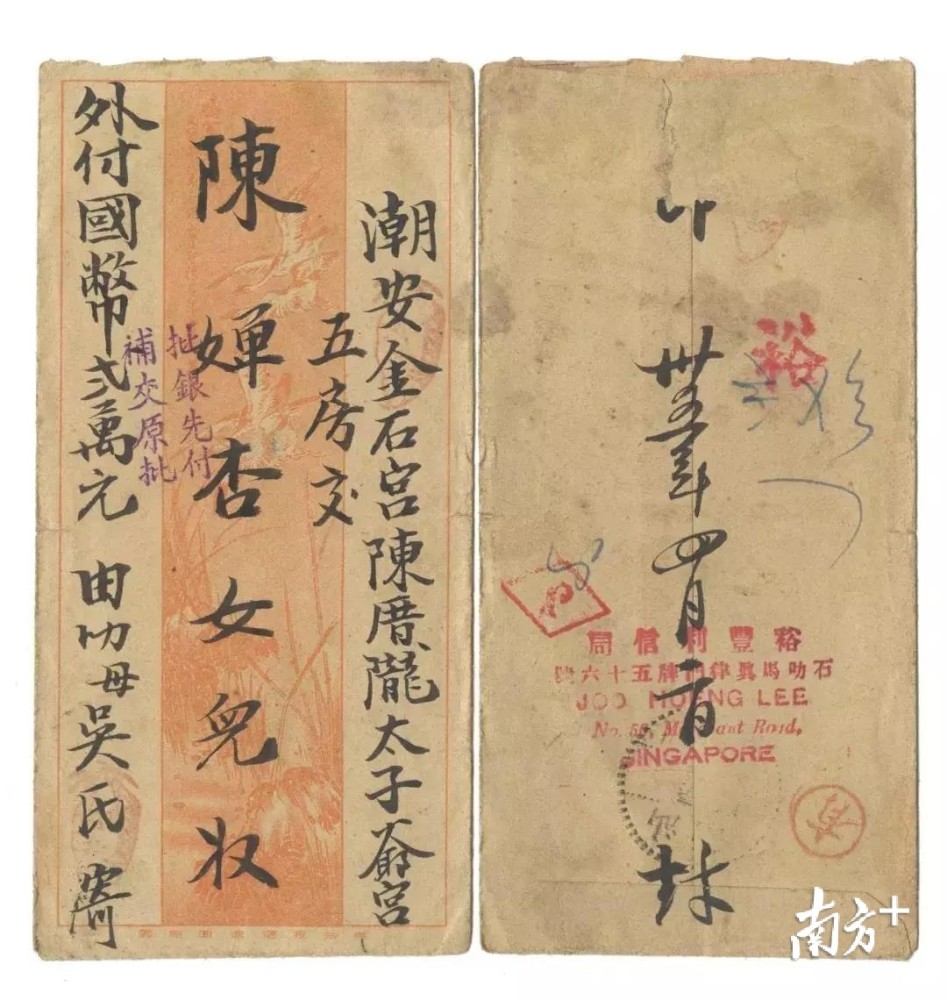 潮安金石宮陳厝隴太子爺宮
五房交
陳嬋杏女兒收
批銀先付
補交原批
外付國幣弍萬元 由叻母吳氏寄
叻 卅五年四月一日 封
裕
裕豐利信局
石叻馬真律門牌五十六號
JOO HOENG LEE
No. 56, Merchant Road,
SINGAPORE
南方+